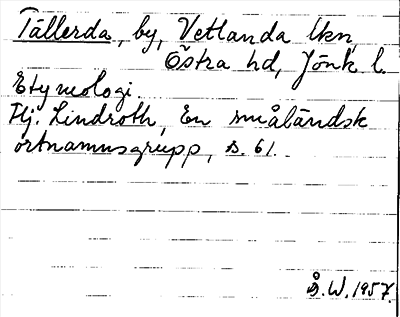 Tällerda, by, Vetlanda lkn,
Östra hd, Jönk l.
Etymologi.
Hj. Lindroth, En småländsk
ortnamnsgrupp, s. 61.
Å.W. 1957.